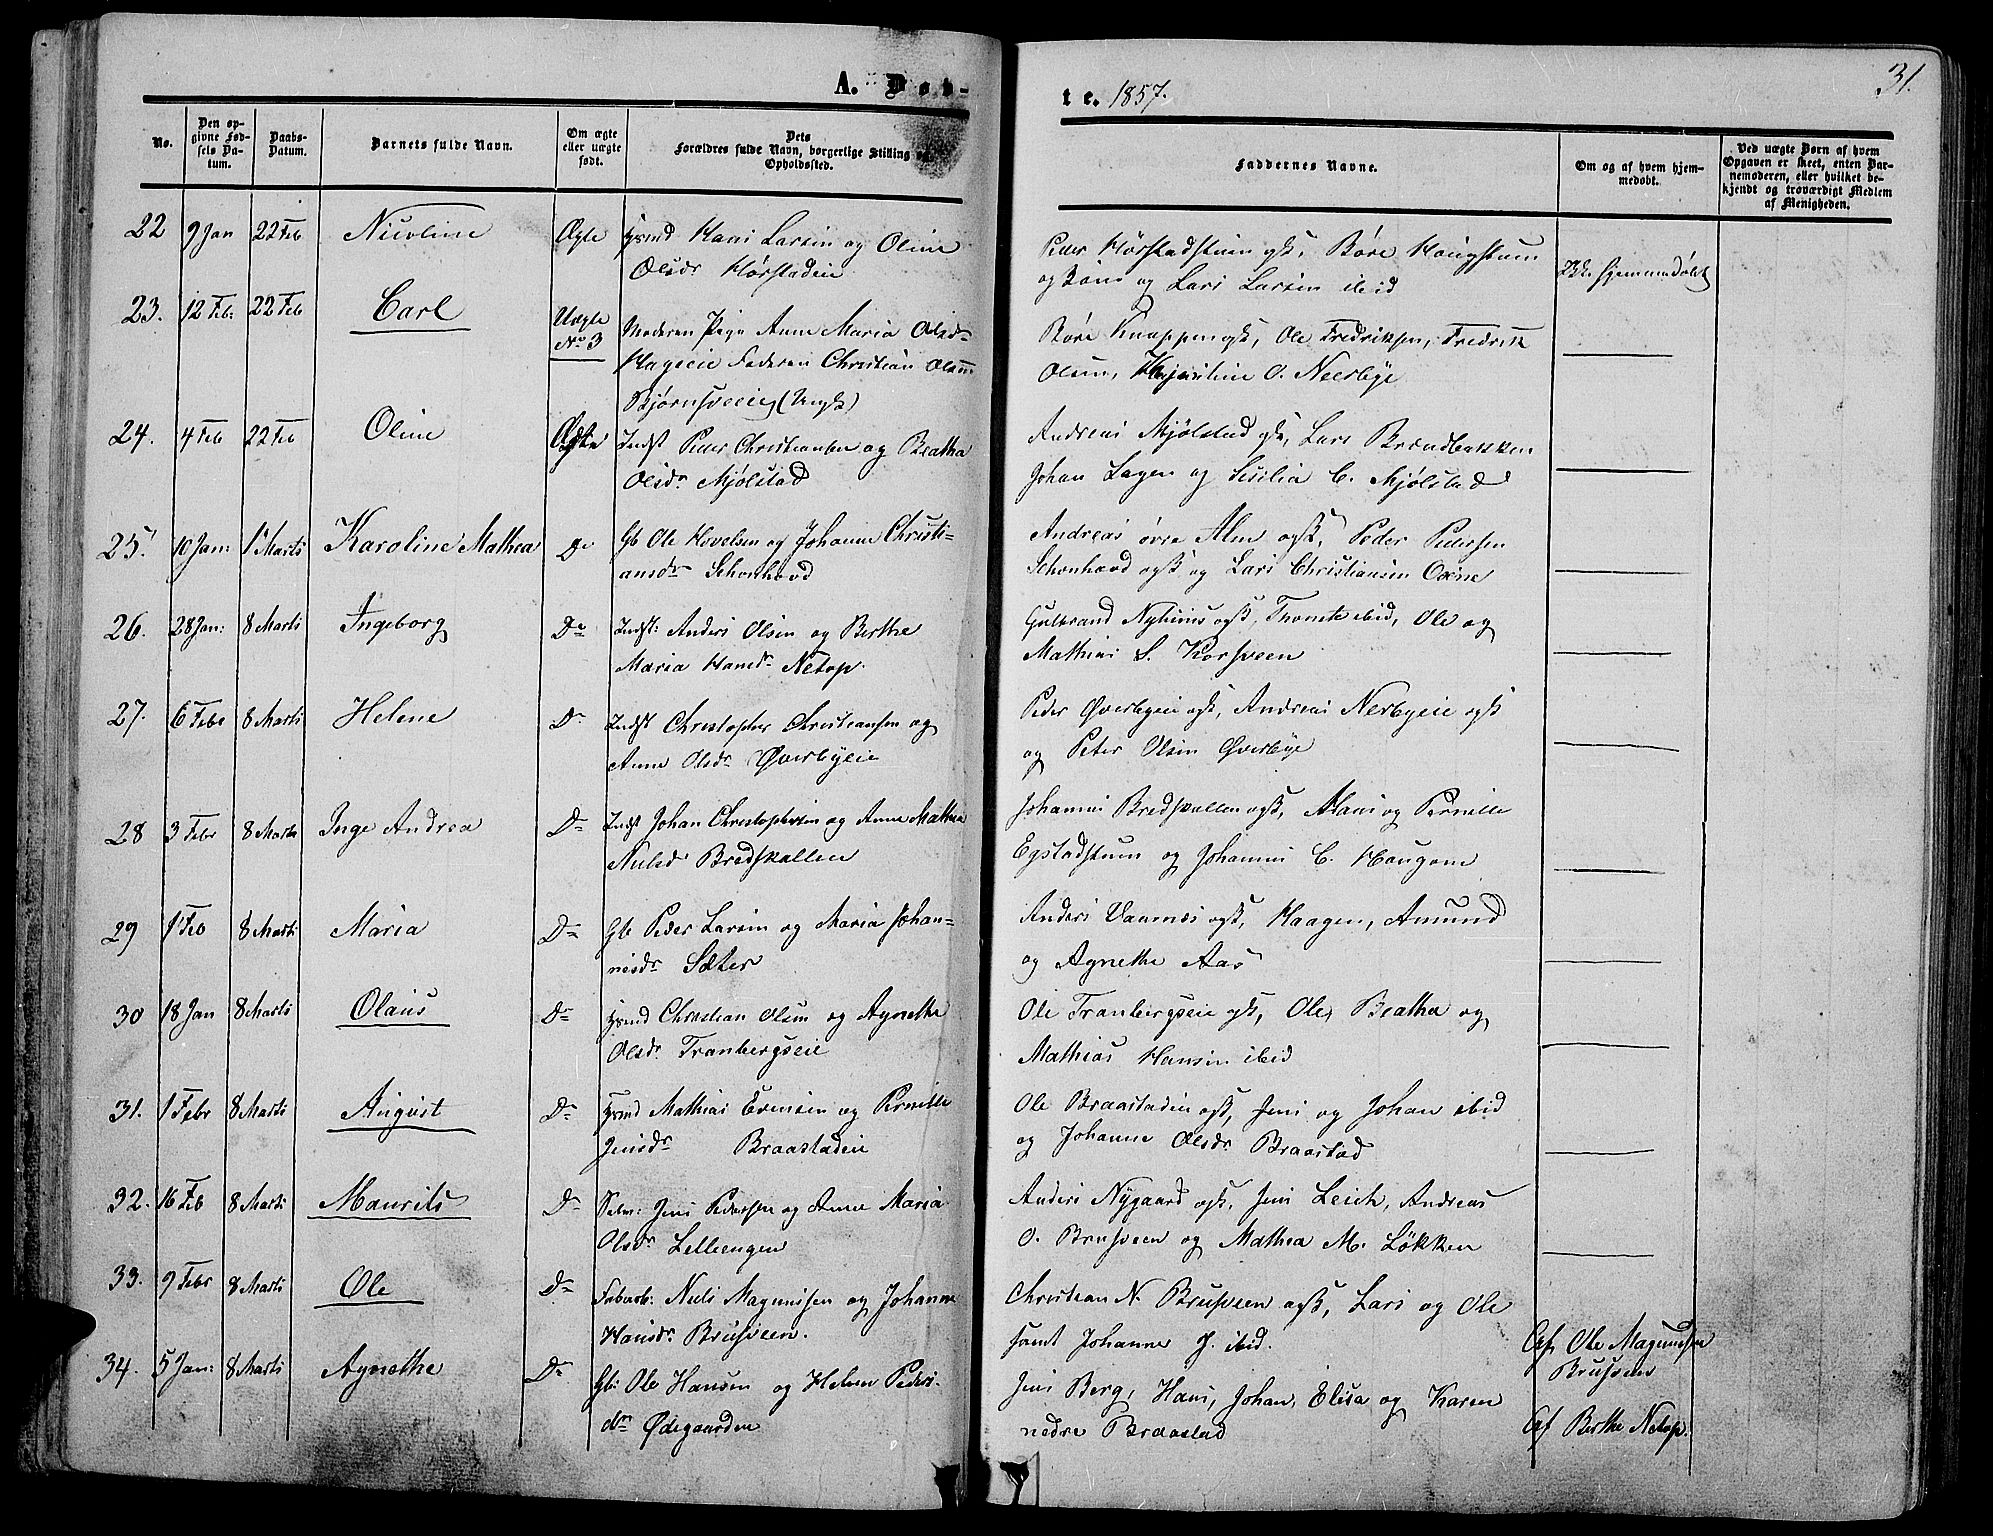 A. Døb-
te. 1857.
31.
No.
Den op-
givne Fød-
sels Da-
tum.
Daabs-
Datum.
Barnets fulde Navn.
Om ægte
eller uægte
født.
Dets
Forældres fulde Navn, borgerlige Stilling og
Opholdssted.
Faddernes Navne.
Om og af hvem hjem-
medøbt.
Ved uægte Børn af hvem
Opgaven er skeet, enten Bar-
nemoderen, eller hvilket be-
kjendt og troværdigt Medlem
af Menigheden.
22 9 Jan 22 Feb Nicoline Ægte Hans Larsen og Oline
Olsdr Hørstadeie
Peder Hørstadstuen gsk, Børe Haugstuen
og Lars Larsen ibid
Ikke hjemmedøbt
23. 12 Feb: 22 Feb Carl Uægte
No 3
Moderen Pige Anne Maria Olsdr
Hageeie Faderen Christian Olsen
Bjørnsveeie (Ungk)
Børe Knappen gsk, Ole Fredriksen, Fredrik
Olsen, Kjerstine O. Neerbye
24. 4 Feb 22 Feb Oline Ægte Indst Peder Christiansen og Beatha
Olsdr Mjølstad
Andreas Mjølstad gsk, Lars Brændbakken
Johan Lagen og Sisilia C. Mjølstad
25. 10 Jan: 1 Marts Karoline Mathea Do Gb Ole Hovelsen og Johanne Christi-
ansdr Schonhovd
Andreas øvre Alm og sk, Peder Pedersen
Schonhovd gsk og Lars Christiansen
26. 28 Jan: 8 Marts Ingeborg Do Indst: Anders Olsen og Berthe
Maria Hansdr Netop.
Gulbrand Nyhuus gsk, Thomte ibid, Ole og
Mathias S. Korsveen
27. 6 Febr 8 Marts Helene Do Indst Christopher Christiansen og
Anne Olsdr Øverbyeie
Peder Øverbyeie gsk, Andreas Nerbyeie gsk
og Peter Olsen Øverbye
28 3 Febr 8 Marts Inge Andrea Do Indst Johan Christophersen og Anne Mathea
Nielsdr Bredskallen
Johannes Bredskallen gsk, Hans og Pernille
Egstadstuen og Johannes C. Haugom
29 1 Feb 8 Marts Maria Do Gb Peder Larsen og Maria Johan-
nesdr Sæter
Anders Vannæs gsk, Haagen, Amund
og Agnethe Aas
30 18 Jan 8 Marts Olaus Do Christian Olsen og Agnethe
Olsdr Tranbergseie
Ole Tranbergseie gsk, Ole, Beatha og
Mathias Hansen ibid
31. 1 Febr 8 Marts August Do Mathias Evensen og Pernille
Jensdr Braastadeie
Ole Braastadeie gsk, Jens og Johan ibid
og Johanne Olsdr Braastad
32. 16 Feb 8 Marts Maurits Do Selv: Jens Pedersen og Anne Maria
Olsdr Lilleengen
Anders Nygaard gsk, Jens Leich, Andreas
O. Brusveen og Mathea M. Løkken
33. 9 Febr 8 Marts Ole Do Niels Magnussen og Johanne
Hansdr Brusveen.
Christian N. Brusveen gsk, Lars og Ole
samt Johanne J. ibid.
Af Ole Magnussen
Brusveen
34. 5 Jan: 8 Marts Agnethe Do Gb: Ole Hansen og Helene Peders-
dr Ødegaarden
Jens Berg, Hans, Johan, Elisa og Karen
nedre Braastad
Af Berthe Netop.